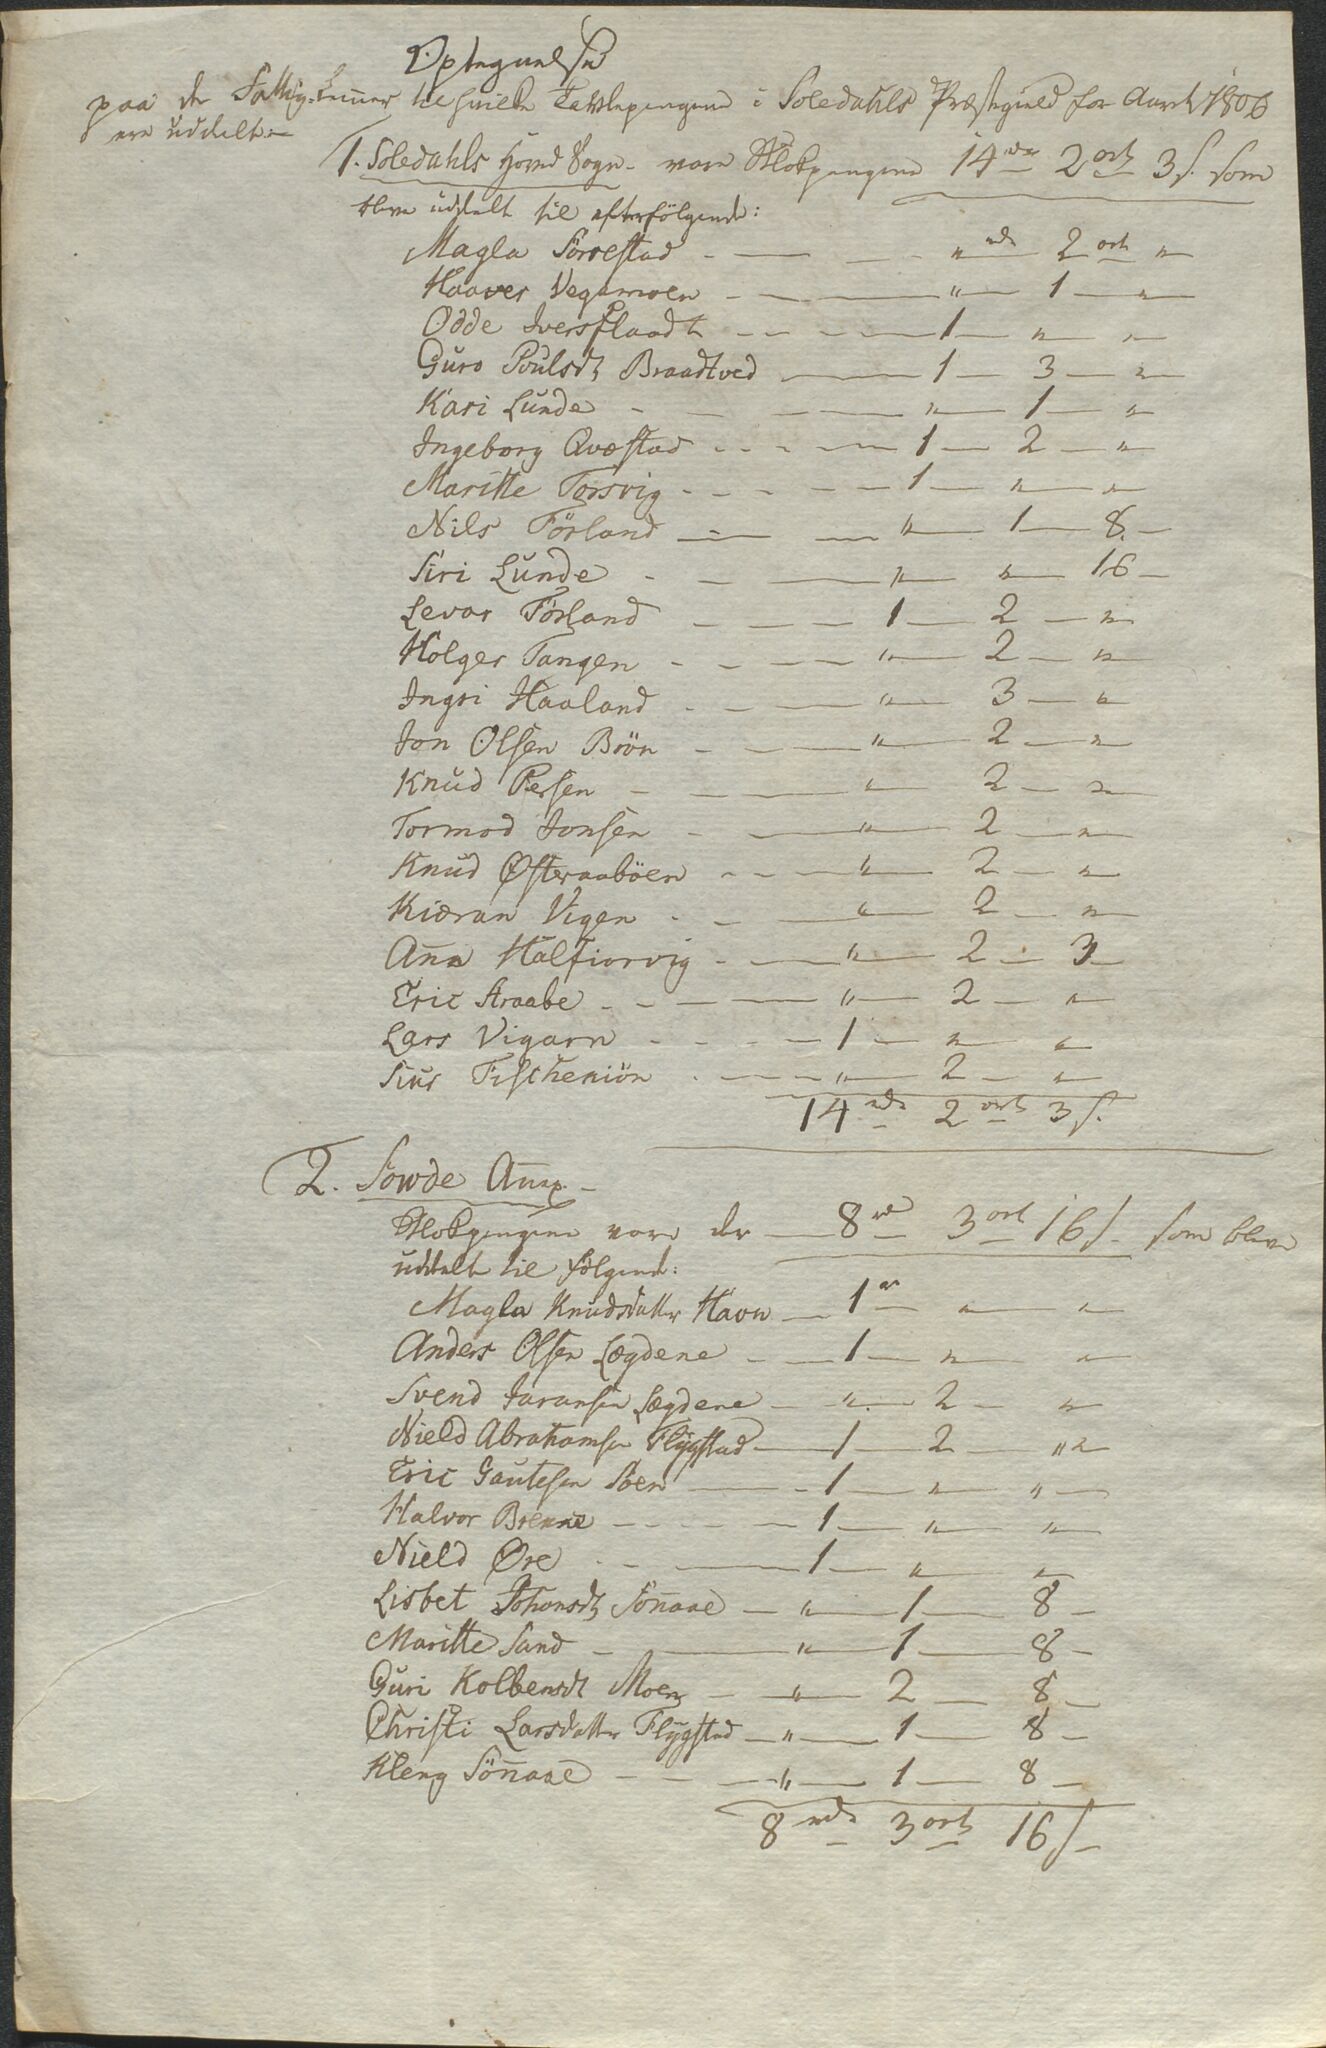 Optegnelse
paa de Fattig-Lemmer til hvilke Tavlepengene i Soledahls Præstegield for Aaret 1806
ere uddelte
1. Soledahls Hoved Sogn - vare Blokpengene 14 rdr 2 ort 3 s. som
bleve uddelt til efterfölgende:
Magla Sörrestad - " rdr 2 ort "
Haaver Vegamoen - " - 1 - "
Odde Iversflaadt - 1 - " - "
Guro Poulsdt Braadtved - 1 - 3 - "
Kari Lunde - " - 1 - "
Ingeborg Qvæstad - 1 - 2 - "
Maritte Torsvig - 1 - " - "
Nils Förland - " - 1 - 8 -
Siri Lunde - " - " - 16 -
Levor Förland - 1 - 2 - "
Holger Tangen - " - 2 - "
Ingri Haaland - " - 3 - "
Jon Olsen Brön - " - 2 - "
Knud Persen - " - 2 - "
Tormod Jonsen - " - 2 - "
Knud Østeraaböen - " - 2 - "
Kiøran Vigen - " - 2 - "
Aña Halfiorvig - " - 2 - 3
Eric Straabe - " - 2 - "
Lars Vigarn - 1 - " - "
Siur - " - 2 - "
14 rdr 2 ort 3 s.
2. Sowde Añex. -
Blokpengene vare der - 8 rdr 3 ort 16 s. som bleve
uddelt til fölgende:
Magla Knudsdatter Havn - 1 rdr " "
Anders Olsen Lægdene - 1 - " - "
Svend Lægdene - " - 2 - "
Nield Abrahamsen Flÿgstad - 1 - 2 - "
Eric Gautesen Soen - 1 - " - "
Halvor Brenne - 1 - " - "
Nield Øre - 1 - " - "
Lisbet Johansdt Söñaae - " - 1 - 8 -
Maritte Sand - " - 1 - 8 -
Guri Kolbensdt Moen - " - 2 - 8 -
Christi Larsdatter Flÿgstad - " - 1 - 8 -
Kleng Söñaae - " - 1 - 8 -
8 rdr 3 ort 16 s.